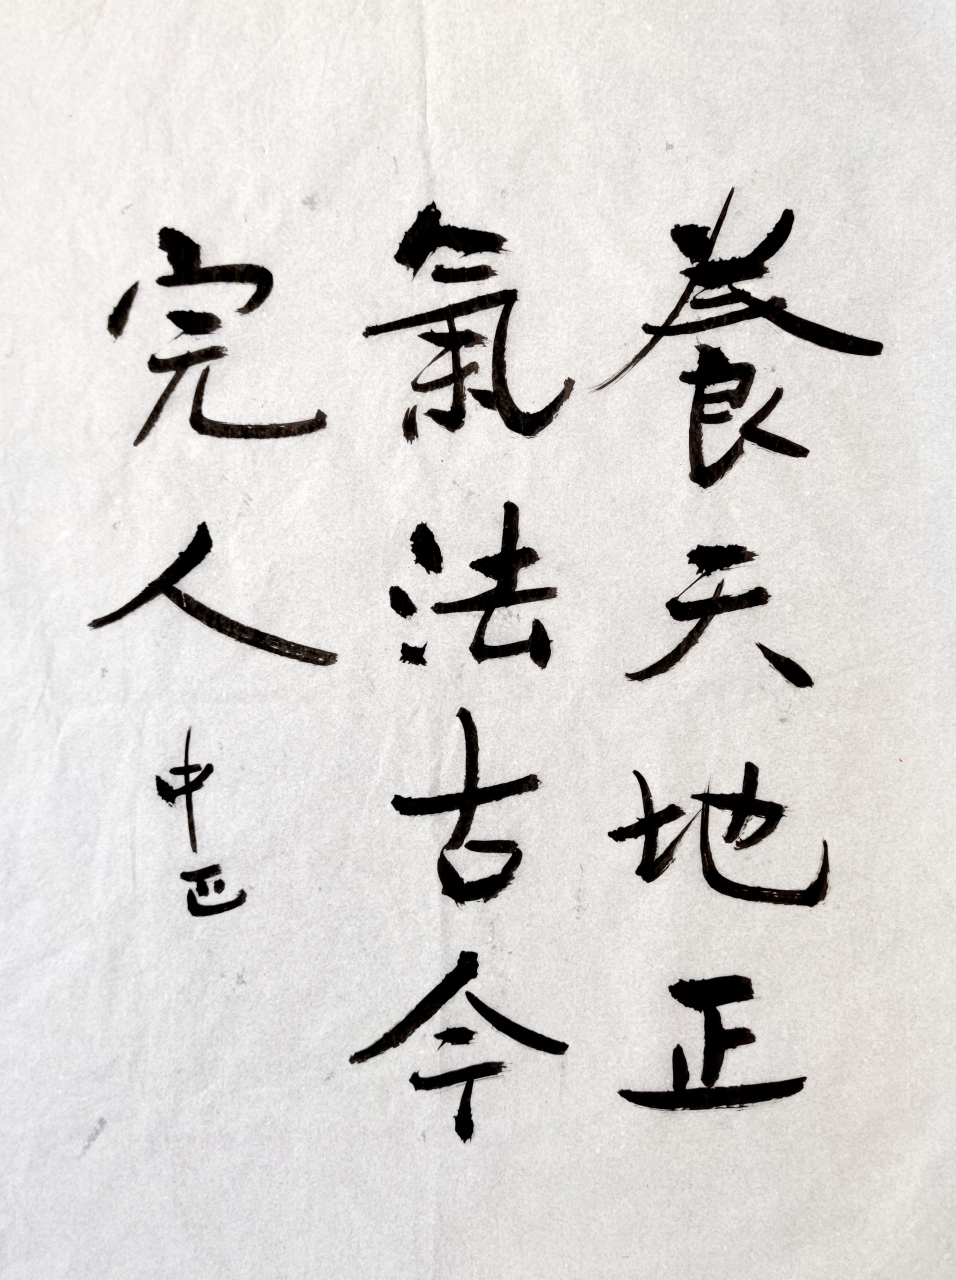 養天地正
氣法古今
完人
中正